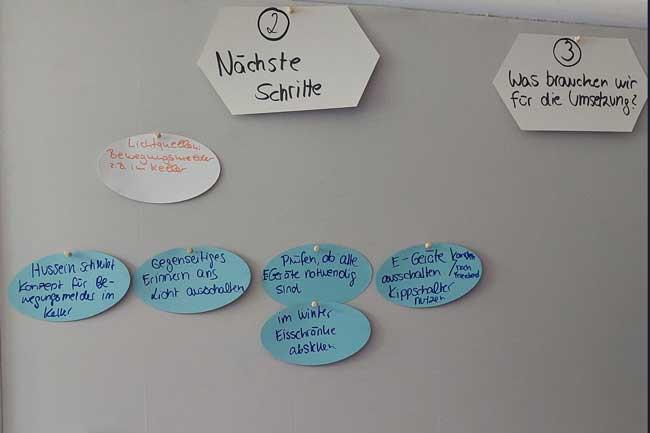 2
Nächste
Schritte
3
Was brauchen wir
für die Umsetzung?
Lichtquellen:
Bewegungsmelder
z.B. im Keller
Hussein schreibt
Konzept für Be-
wegungsmelder im
Keller
Gegenseitiges
Erinnern ans
Licht ausschalten
Prüfen, ob alle
EGeräte notwendig
sind
im Winter
Eisschränke
abstellen
E-Geräte
ausschalten /
Kippschalter
nutzen